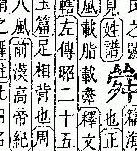 見姓譜
也正
風載脂載舝釋文
轄左傳昭二十五
玉篇足相背也周
人風前漢高帝紀